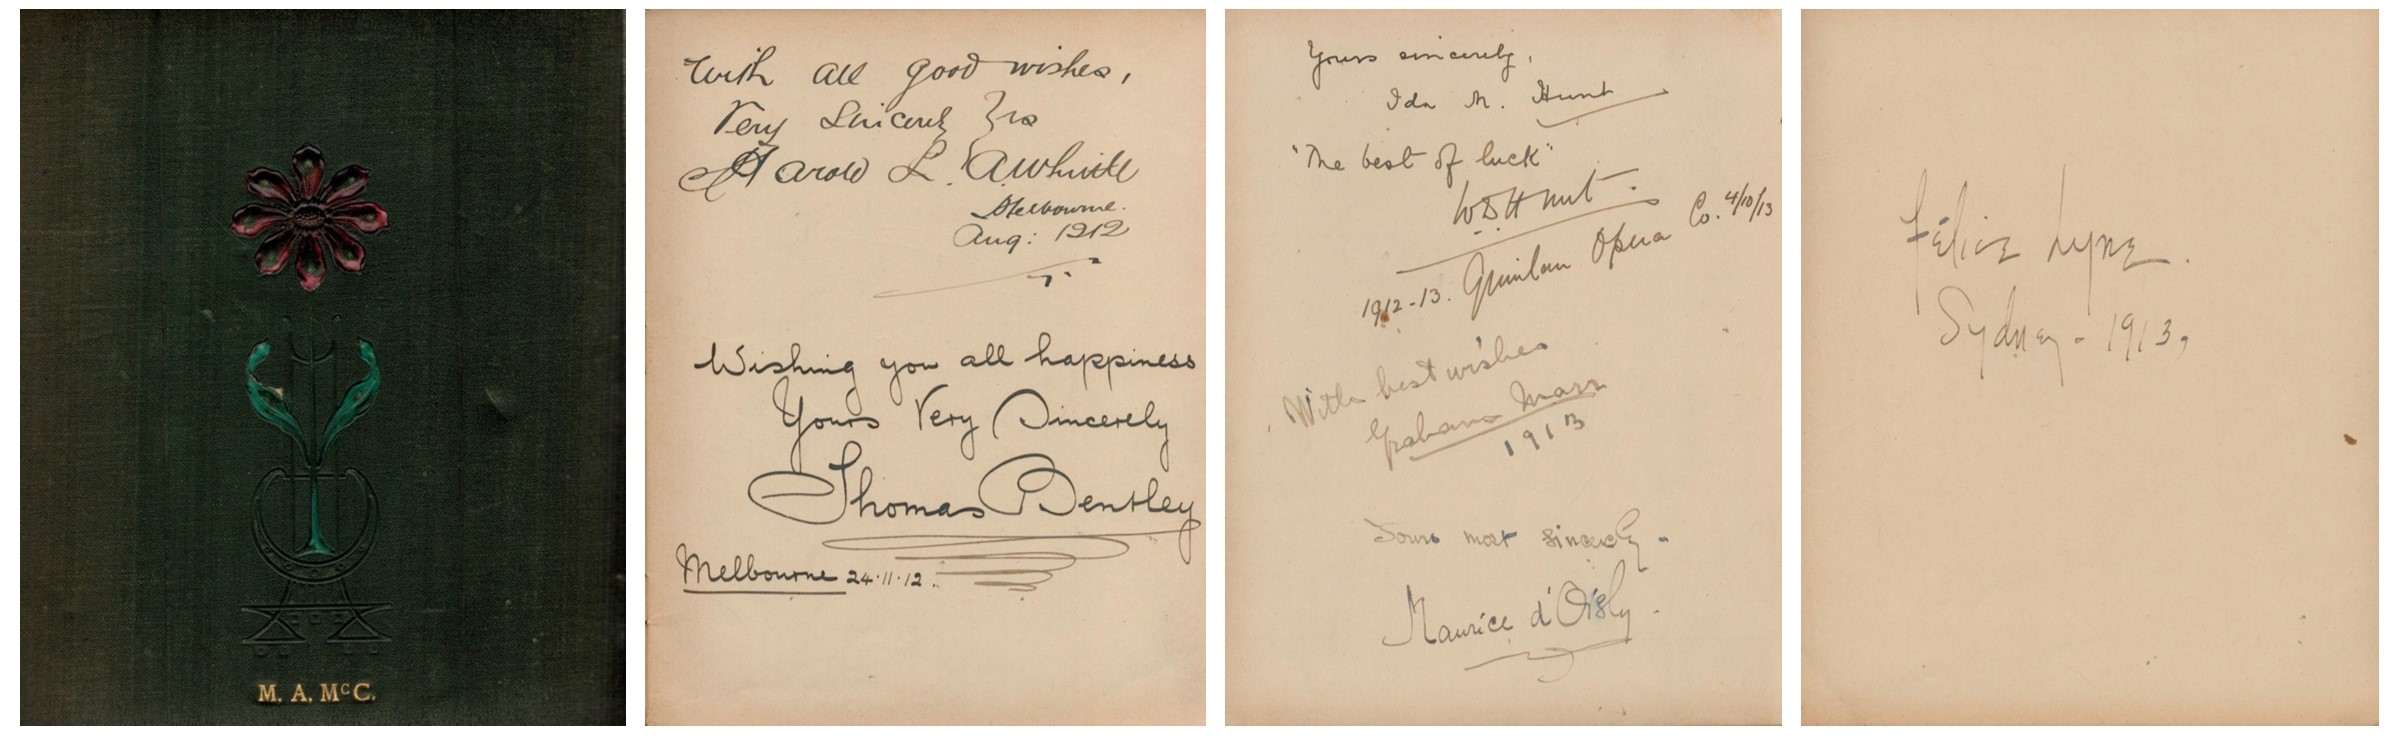 M. A. McC.
With all good wishes,
Very Sincerely Yrs
Harold L.
Melbourne.
Aug: 1912
Wishing you all happiness
Yours Very Sincerely
Thomas Bentley
Melbourne 24.11.12.
Yours sincerely,
Ida M. Hunt
"The best of luck"
W B Hunt.
1912-13. Quinlan Opera Co. 4/10/13
With best wishes
Graham Marr
1913
Yours most sincerely -
Maurice d'Oisly.
Félice Lyne.
Sydney - 1913,